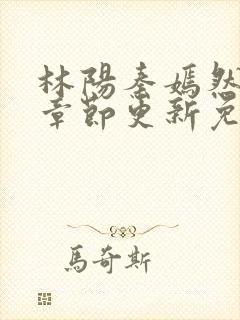 林陽秦嫣然
章節更新免
馬奇斯